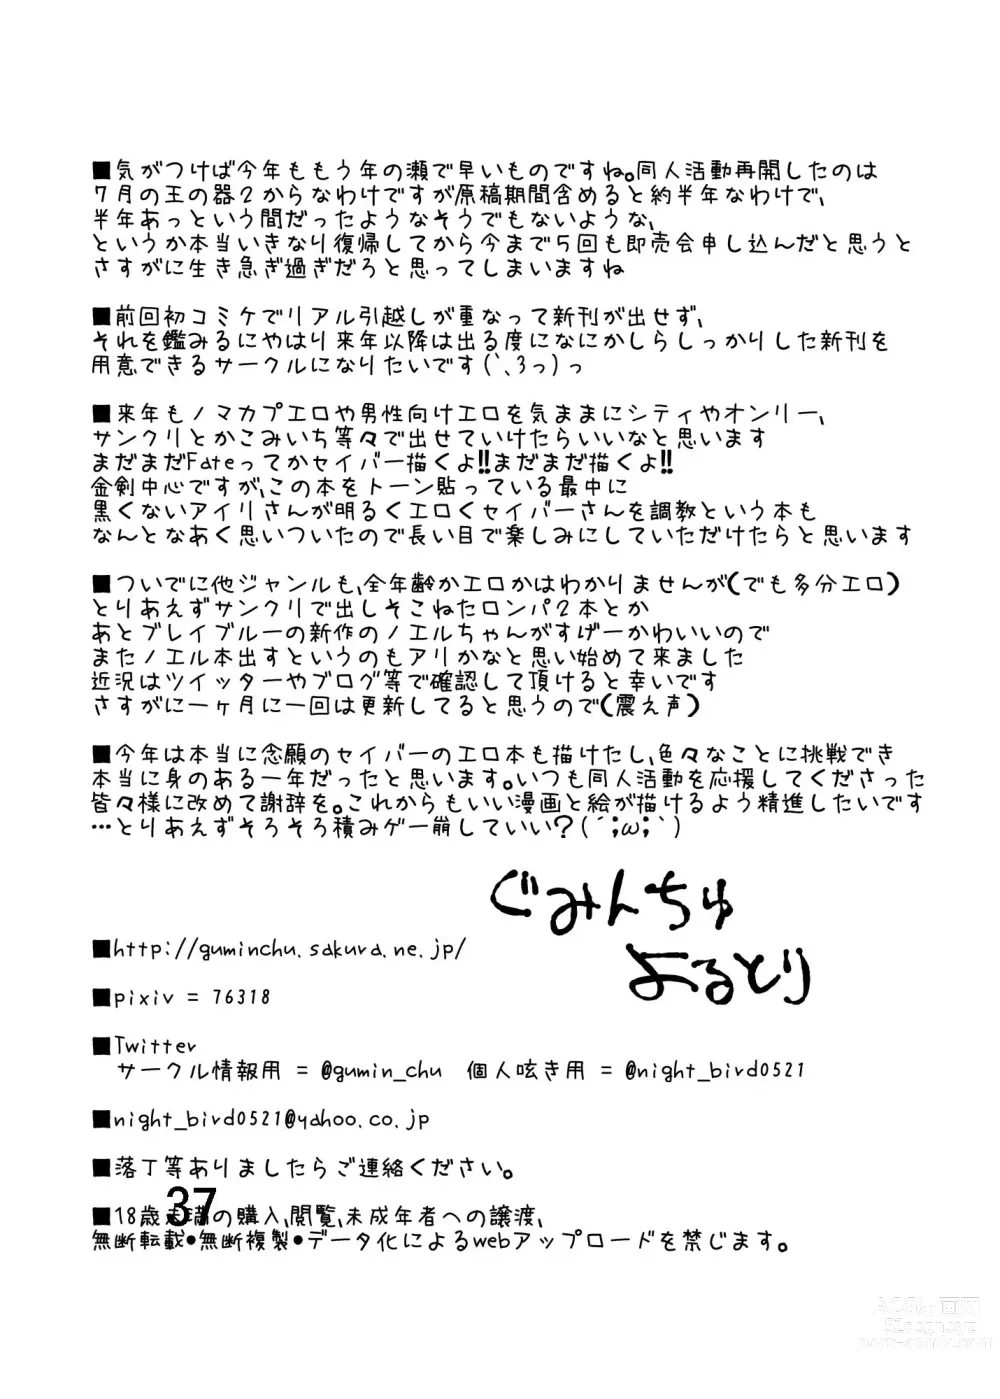 ■気がつけば今年ももう年の瀬で早いものですね。同人活動再開したのは
7月の王の器2からなわけですが原稿期間含めると約半年なわけで、
半年あっという間だったようなそうでもないような、
というか本当いきなり復帰してから今まで5回も即売会申し込んだと思うと
さすがに生き急ぎ過ぎだろと思ってしまいますね
■前回初コミケでリアル引越しが重なって新刊が出せず、
それを鑑みるにやはり来年以降は出る度になにかしらしっかりした新刊を
用意できるサークルになりたいです(`、3っ)っ
■来年もノマカプエロや男性向けエロを気ままにシティやオンリー、
サンクリとかこみいち等々で出せていけたらいいなと思います
まだまだFateってかセイバー描くよ!!まだまだ描くよ!!
金剣中心ですが、この本をトーン貼っている最中に
黒くないアイリさんが明るくエロくセイバーさんを調教という本も
なんとなあく思いついたので長い目で楽しみにしていただけたらと思います
■ついでに他ジャンルも、全年齢かエロかはわかりませんが(でも多分エロ)
とりあえずサンクリで出しそこねたロンパ2本とか
あとブレイブルーの新作のノエルちゃんがすげーかわいいので
またノエル本出すというのもアリかなと思い始めて来ました
近況はツイッターやブログ等で確認して頂けると幸いです
さすがに一ヶ月に一回は更新してると思うので(震え声)
■今年は本当に念願のセイバーのエロ本も描けたし、色々なことに挑戦でき
本当に身のある一年だったと思います。いつも同人活動を応援してくださった
皆々様に改めて謝辞を。これからもいい漫画と絵が描けるよう精進したいです
…とりあえずそろそろ積みゲー崩していい?(´;ω;`)
ぐみんちゅ
よるとり
■http://guminchu.sakura.ne.jp/
■pixiv = 76318
■Twitter
サークル情報用 = @gumin_chu 個人呟き用 = @night_bird0521
■night_bird0521@yahoo.co.jp
■落丁等ありましたらご連絡ください。
37
■18歳未満の購入、閲覧、未成年者への譲渡、
無断転載●無断複製●データ化によるwebアップロードを禁じます。